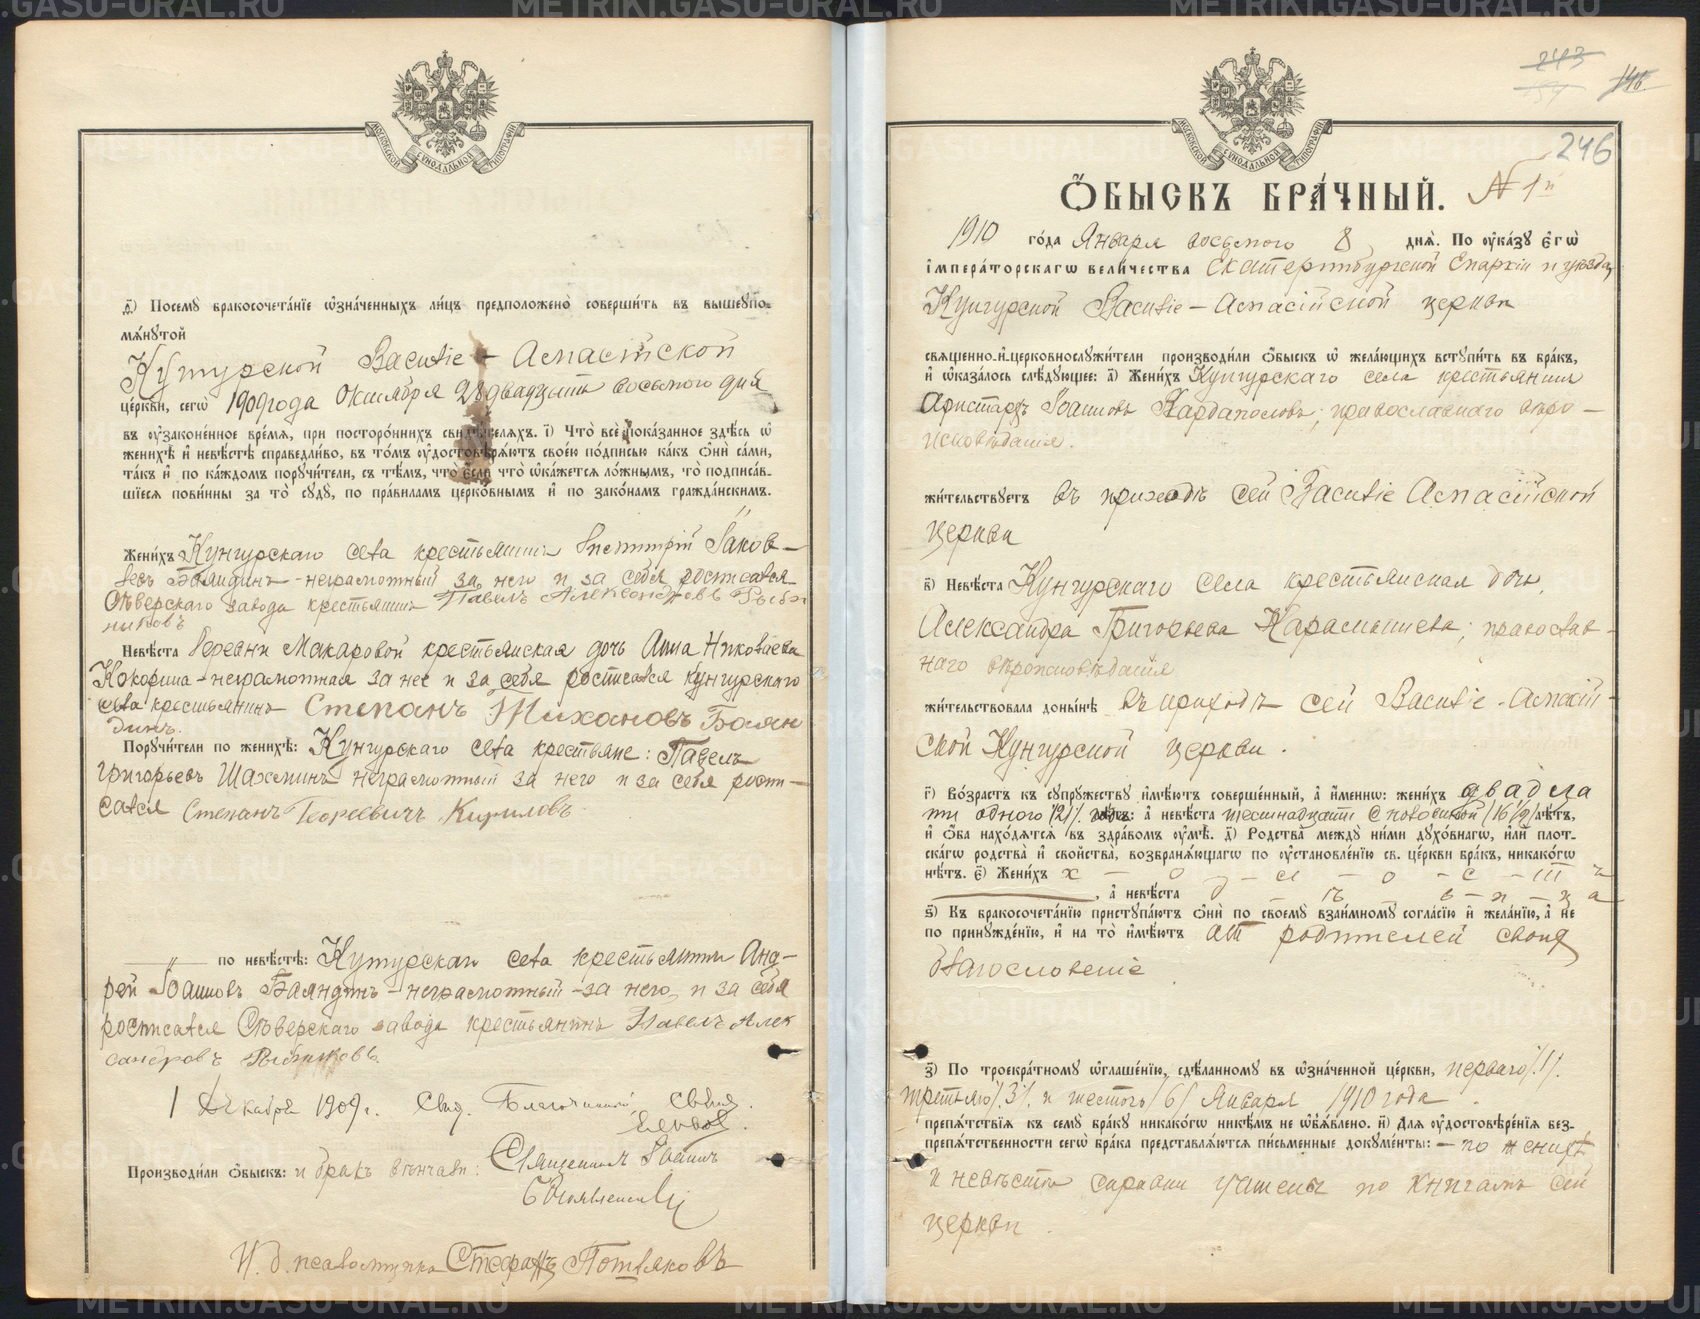 МОСКОВСКОЙ СѴНОДАЛЬНОЙ ТИПОГРАФІИ
ѳ҃) Посемꙋ бракосочета́нїе ѡ҆зна́ченныхъ ли́цъ предположено̀ соверши́ть въ вышеꙋпо-
мѧ́нꙋтой
Кунгурской Василіе-Аспасійской
це́ркви, сегѡ̀ 1909 года Октября 28 двадцать восьмого дня
въ ᲂу҆зако́ненное вре́мѧ, при посторо́ннихъ свидѣ́телѧхъ. і҃) Что̀ всѐ пока́занное здѣ́сь ѡ҆
женихѣ̀ и҆ невѣ́стѣ справедли́во, въ то́мъ ᲂу҆достовѣрѧ́ютъ свое́ю по́дписью ка́къ ѻ҆нѝ са́ми,
та́къ и҆ по ка́ждомъ порꙋчи́тели, съ тѣ́мъ, что̀ є҆́сли что̀ ѡ҆ка́жетсѧ ло́жнымъ, то̀ подписа́в-
шїесѧ пови́нны за то̀ сꙋдꙋ̀, по пра́виламъ церко́внымъ и҆ по зако́намъ гражда́нскимъ.
Жени́хъ Кунгурскаго села крестьянинъ Димитрій Іаков-
левъ Баяндинъ - неграмотный за него и за себя росписался
Сѣверскаго завода крестьянинъ Павелъ Александровъ Рыб
никовъ
Невѣ́ста Деревни Макаровой крестьянская дочь Анна Николаева
Кокорина - неграмотная за нее и за себя росписался Кунгурскаго
села крестьянинъ Степанъ Тихановъ Баян
динъ.
Порꙋчи́тели по женихѣ̀: Кунгурскаго села крестьяне: Павелъ
Григорьевъ Шахминъ неграмотный за него и за себя роспи-
сался Степанъ Георгевичъ Кириловъ
по невѣ́стѣ: Кунгурскаго села крестьянинъ Анд-
рей Іоанновъ Баяндинъ - неграмотный - за него и за себя
росписался Сѣверскаго завода крестьянинъ Павелъ Алек
сандровъ Рыбниковъ
1 Декабря 1909 г. Свид. Благочинный, Свящ.
Производи́ли ѻ҆́быскъ: и бракъ вѣнчали: Священникъ Іоаннъ
Богоявленскій
И. д. псаломщика Стефанъ Потеряковъ
243
246
МОСКОВСКОЙ СѴНОДАЛЬНОЙ ТИПОГРАФІИ
Ѻ҆́БЫСКЪ БРА́ЧНЫЙ. № 1й
1910 го́да Января восьмого 8 днѧ̀. По ᲂу҆ка́зꙋ є҆гѡ̀
і҆мпера́торскагѡ вели́чества Екатеринбургской Епархіи и уѣзда,
Кунгурской Василіе-Аспасійской церкви
свѧще́нно-и҆-церковнослꙋжи́тели производи́ли ѻ҆́быскъ ѡ҆ жела́ющихъ встꙋпи́ть въ бра́къ,
и҆ ѡ҆каза́лось слѣ́дꙋющее: а҃) Жени́хъ Кунгурскаго села крестьянинъ
Аристархъ Іоанновъ Кардаполовъ; православнаго вѣро-
исповѣданія.
жи́тельствꙋетъ въ приходѣ сей Василіе Аспасійской
церкви
в҃) Невѣ́ста Кунгурскаго села крестьянская дочь
Александра Григорьева Карамышева; православ-
наго вѣроисповѣданія
жи́тельствовала доны́нѣ въ приходѣ сей Василіе-Аспасій-
ской Кунгурской церкви.
г҃) Во́зрастъ къ сꙋпрꙋ́жествꙋ и҆мѣ́ютъ соверше́нный, а҆ и҆́меннѡ: жени́хъ двадца
ти одного /21/ лѣтъ: а҆ невѣ́ста шестнадцати с половиной /16½/ лѣ́тъ,
и҆ ѻ҆́ба нахо́дѧтсѧ въ здра́вомъ ᲂу҆мѣ̀. д҃) Родства̀ междꙋ ни́ми дꙋхо́внагѡ, и҆лѝ плот-
ска́гѡ родства̀ и҆ свойства̀, возбранѧ́ющагѡ по ᲂу҆становле́нїю св. це́ркви бра́къ, никако́гѡ
нѣ́тъ. є҃) Жени́хъ х - о - л - о - с - т - ъ
, а҆ невѣ́ста д - ѣ - в - и - ц а
ѕ҃) Къ бракосочета́нїю пристꙋпа́ютъ ѻ҆нѝ по своемꙋ̀ взаи́мномꙋ согла́сїю и҆ жела́нїю, а҆ не
по принꙋжде́нїю, и҆ на то̀ и҆мѣ́ютъ отъ родителей своихъ
благословеніе
з҃) По троекра́тномꙋ ѡ҆глаше́нїю, сдѣ́ланномꙋ въ ѡ҆зна́ченной це́ркви, перваго /1/
третьяго /3/ и шестого /6/ Января 1910 года.
препѧ́тствїѧ къ семꙋ̀ бра́кꙋ никако́гѡ никѣ́мъ не ѡ҆б̾ѧ́влено. и҃) Длѧ ᲂу҆достовѣре́нїѧ без-
препѧ́тственности сегѡ̀ бра́ка представлѧ́ютсѧ пи́сьменные докꙋме́нты: - по женихѣ
и невѣстѣ справки учинены по книгамъ сей
церкви.
METRIKI.GASU-URAL.RU